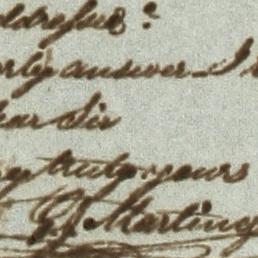 address?
rly answer. I
ear Sir
ry truly yours
G J Martin